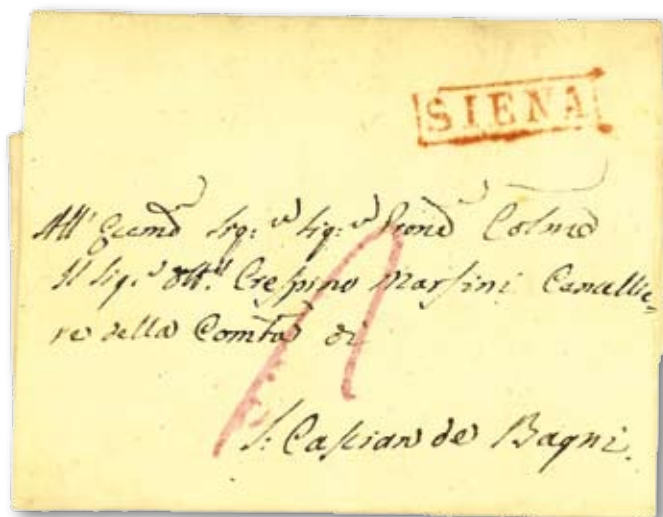 SIENA
All' Eccmo Sig:re Sig:re Prone Colmo
Il Sig:r Ott: Crespino Marsini Cancellie=
re della Comtà di
S: Casciano de Bagni.